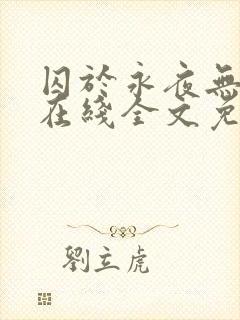 囚於永夜無
在綫全文免
劉立虎